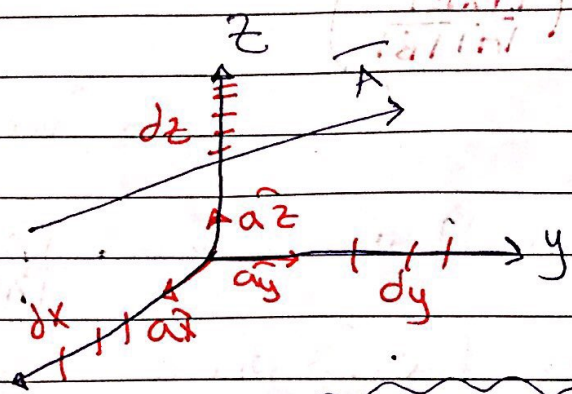 z
A
dz
az
y
ay
dy
dx
ax